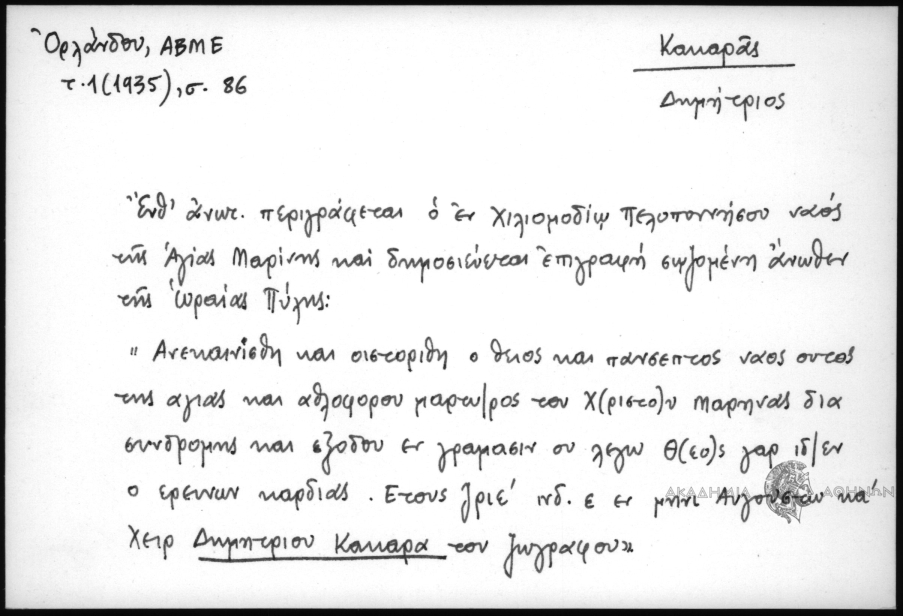 Ὀρλάνδου, ΑΒΜΕ
τ. 1 (1935), σ. 86
Κακαρᾶς
Δημήτριος
Ἔνθ' ἄνωτ. περιγράφεται ὁ ἐν Χιλιομοδίῳ Πελοποννήσου ναός
τῆς Ἁγίας Μαρίνης καὶ δημοσιεύεται ἐπιγραφή σῳζομένη ἄνωθεν
τῆς Ὡραίας Πύλης:
"Ανεκαινίσθη και οιστοριθη ο θειος και πανσεπτος ναος ουτος
της αγιας και αθλοφορου μαρτυ/ρος του Χ(ριστο)υ Μαρηνας δια
συνδρομης και εξοδου εν γραμασιν ου λεγω Θ(εο)ς γαρ ιδ/εν
ο ερευνων καρδιας. Ετους ζριε' ινδ. ε εν μηνι Αυγουστω κα'
χειρ Δημητριου Κακαρα του ζωγραφου».
ΑΚΑΔΗΜΙΑ ΑΘΗΝΩΝ